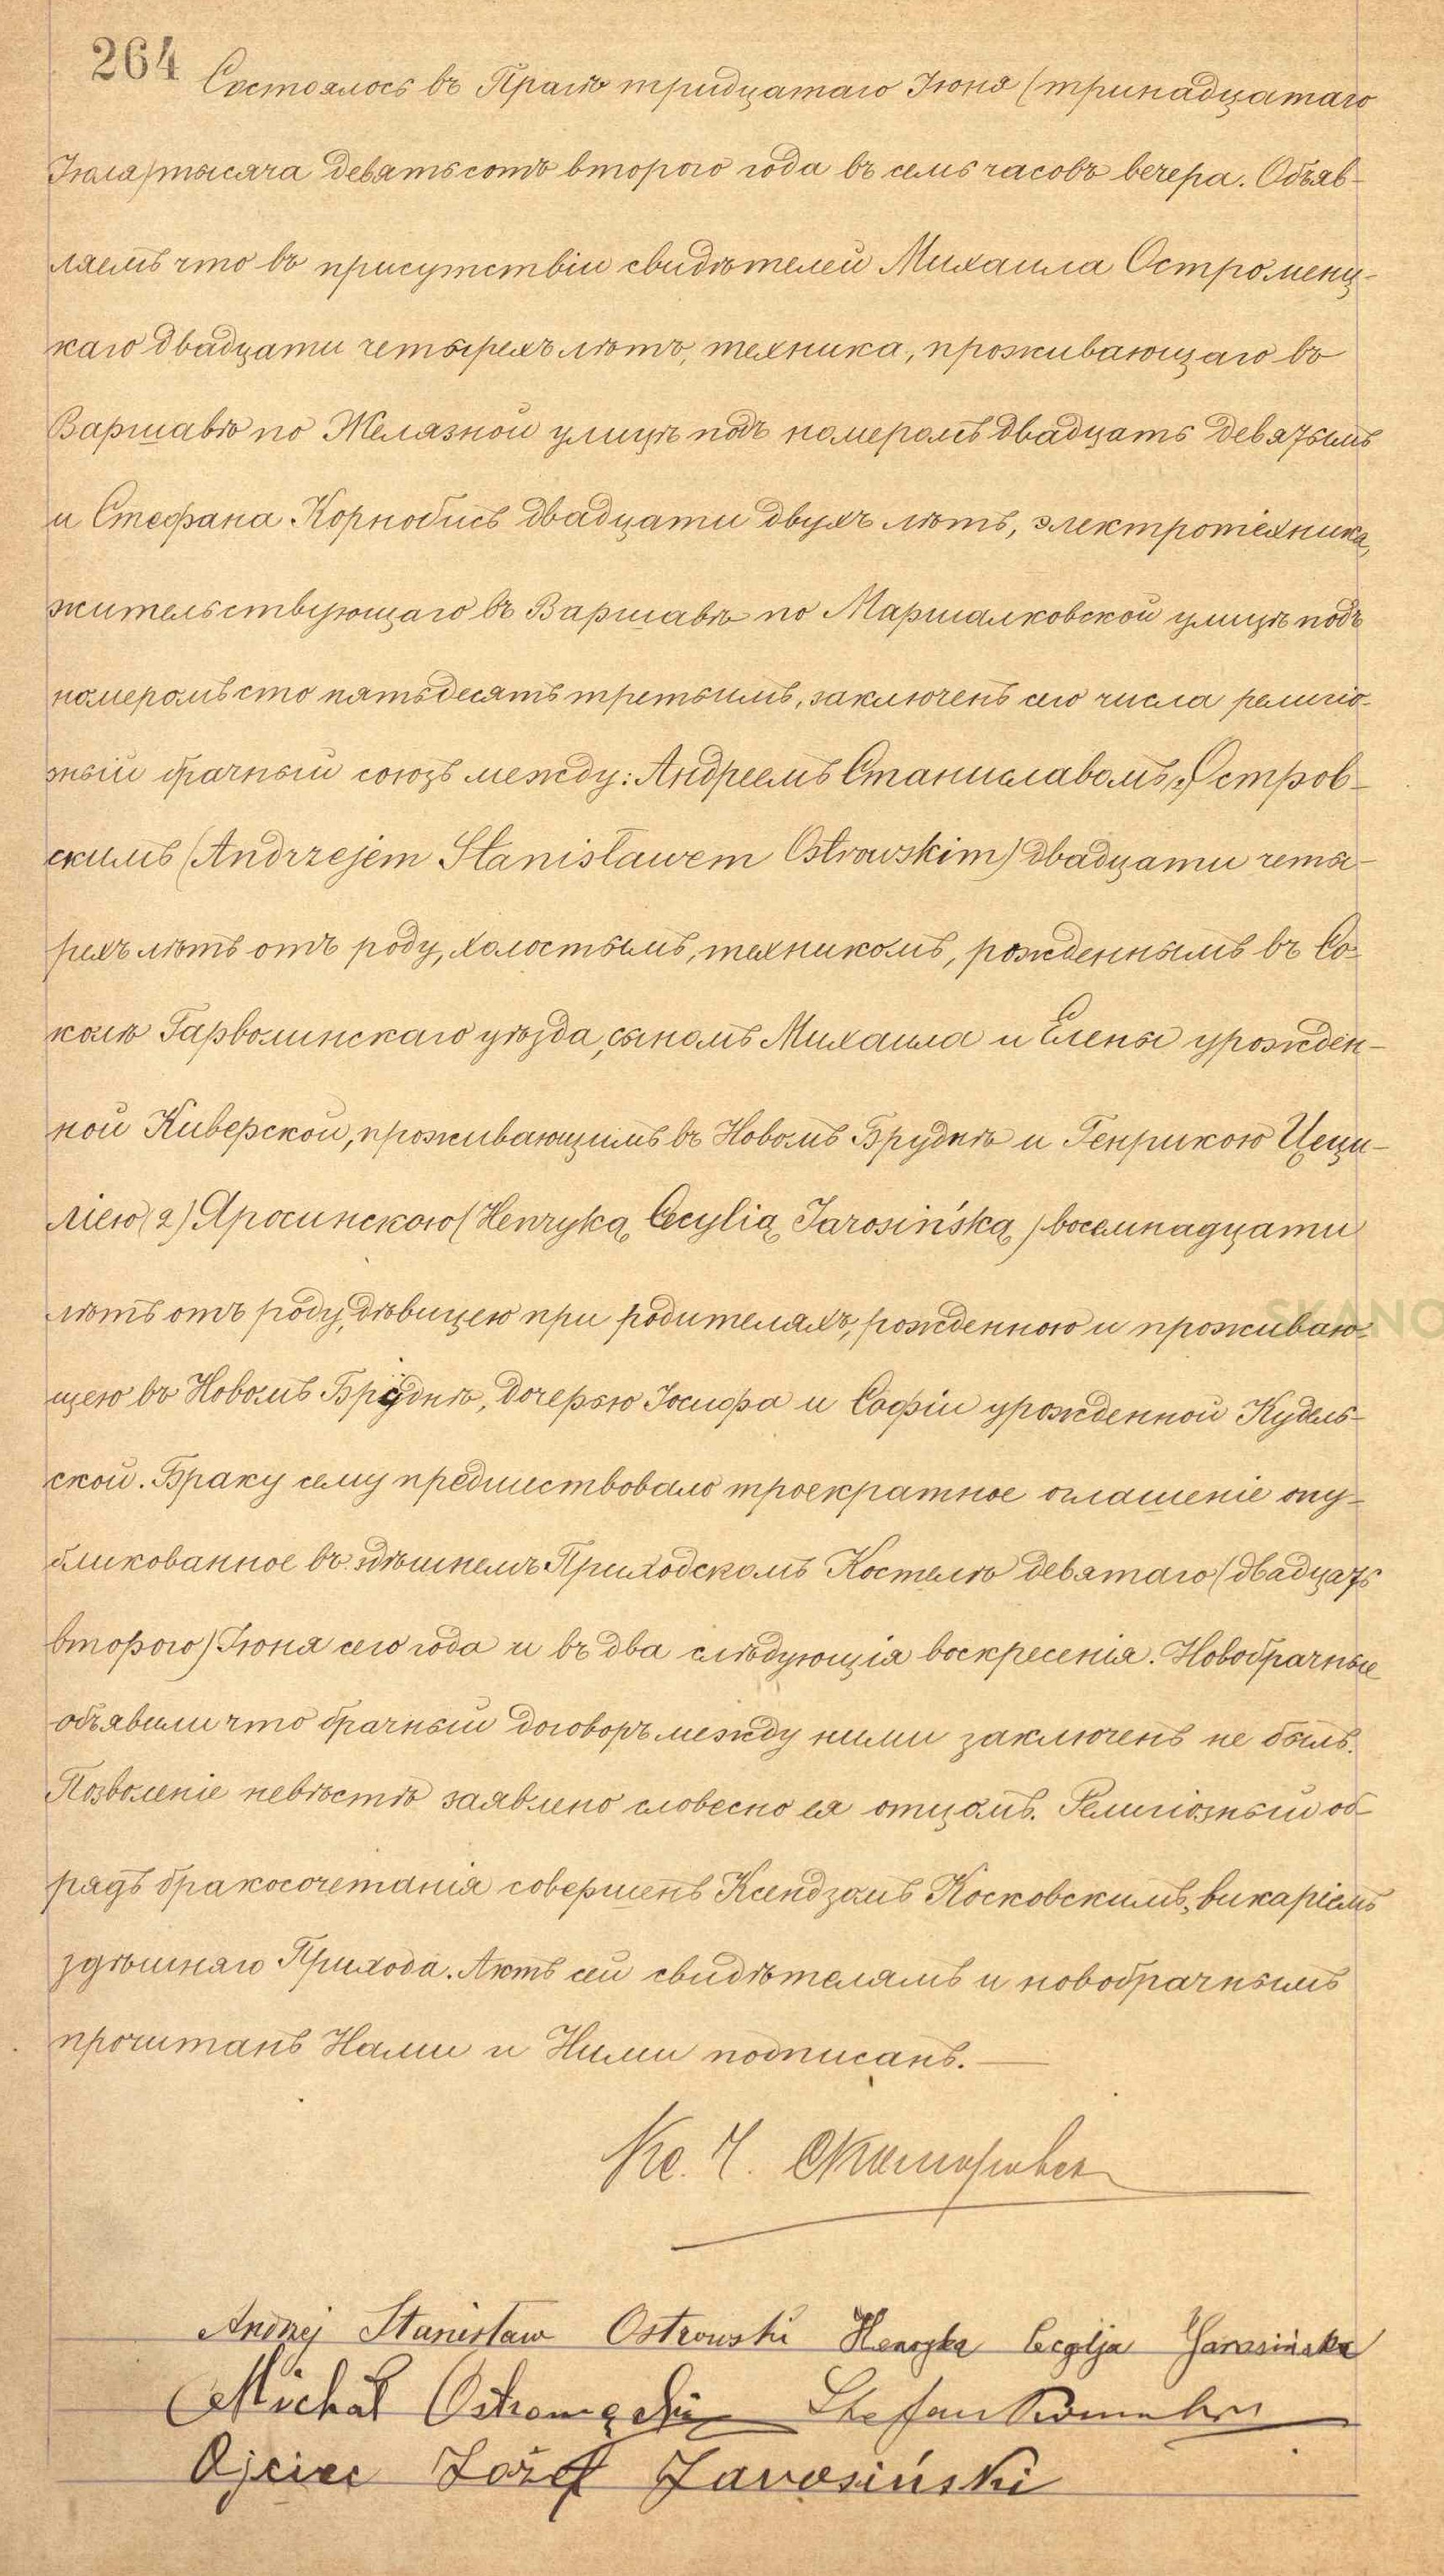 264 Состоялось въ Прагѣ тридцатаго Іюня (тринадцатаго
Іюля) тысяча девятьсотъ второго года въ семь часовъ вечера. Объяв-
ляемъ что въ присутствіи свидѣтелей Михаила Остроменц-
каго двадцати четырехъ лѣтъ, техника, проживающаго въ
Варшавѣ по Желязной улицѣ подъ номеромъ двадцать девятымъ
и Стефана Корнобисъ двадцати двухъ лѣтъ, электротехника,
жительствующаго въ Варшавѣ по Маршалковской улицѣ подъ
номеромъ сто пятьдесятъ третьимъ, заключенъ сего числа религіо-
зный брачный союзъ между: Андреемъ Станиславомъ (2) Остров-
скимъ (Andrzejem Stanisławem Ostrowskim) двадцати четы-
рехъ лѣтъ отъ роду, холостымъ, техникомъ, рожденнымъ въ Со-
колѣ Гарволинскаго уѣзда, сыномъ Михаила и Елены урожден-
ной Киверской, проживающимъ въ Новомъ Бруднѣ и Генрикою Цеци-
ліею (2) Яросинскою (Henryką Cecylią Jarosińską) восемнадцати
лѣтъ отъ роду, дѣвицею при родителяхъ, рожденною и проживаю-
щею въ Новомъ Бруднѣ, дочерью Іосифа и Софіи урожденной Кудель-
ской. Браку сему предшествовало троекратное оглашеніе опу-
бликованное въ здѣшнемъ Приходскомъ Костелѣ девятаго (двадцать
второго) Іюня сего года и въ два слѣдующія воскресенія. Новобрачные
объявили что брачный договоръ между ними заключенъ не былъ.
Позволеніе невѣстѣ заявлено словесно ея отцомъ. Религіозный об-
рядъ бракосочетанія совершенъ Ксендзомъ Косковскимъ, викаріемъ
здѣшняго Прихода. Актъ сей свидѣтелямъ и новобрачнымъ
прочитанъ Нами и Ними подписанъ. —
Кс. И.
Andrzej Stanisław Ostrowski Henryka Cecylja Jarosińska
Michał Ostromęcki Stefan
Ojciec Józef Jarosiński